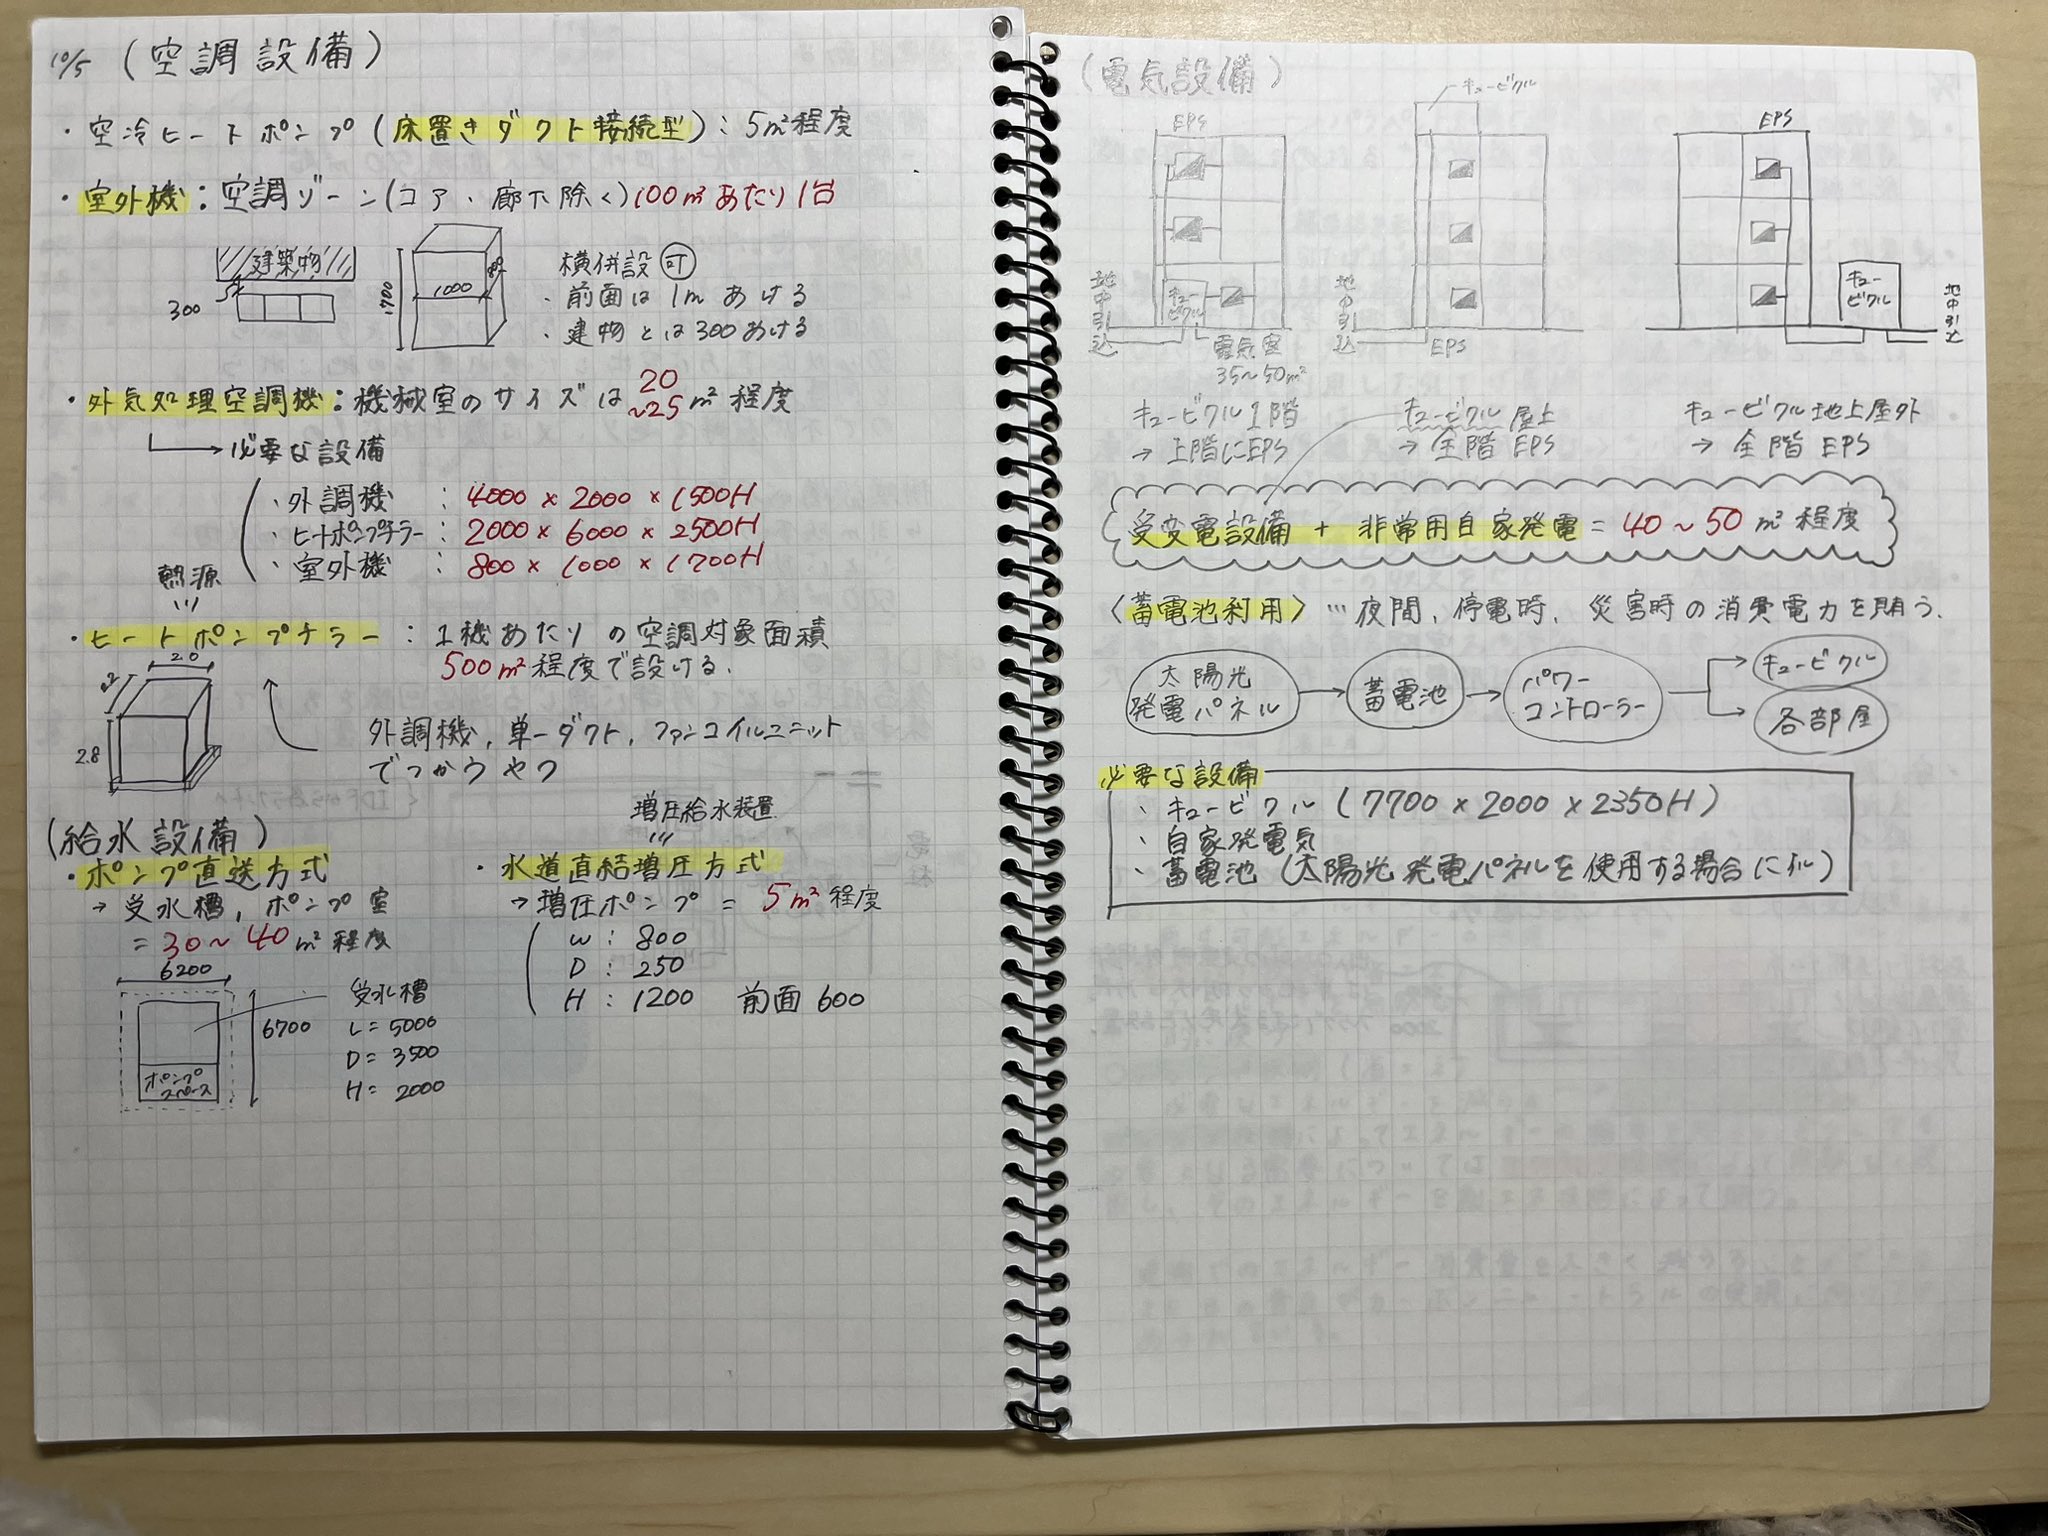 10/5 (空調設備)
・空冷ヒートポンプ(床置きダクト接続型):5㎡程度
・室外機:空調ゾーン(コア、廊下除く)100㎡あたり1台
建築物
300
1700
1000
横併設 可
・前面は1mあける
・建物とは300あける
・外気処理空調機:機械室のサイズは20~25㎡程度
→必要な設備
・外調機 : 4000×2000×1500H
・ヒートポンプチラー:2000×6000×2500H
・室外機 : 800×1000×1700H
熱源
・ヒートポンプチラー:1機あたりの空調対象面積
500㎡程度で設ける.
2.0
2.8
外調機,単一ダクト,ファンコイルユニット
でつかうやつ
(給水設備)
・ポンプ直送方式
→受水槽,ポンプ室
=30~40㎡程度
6200
6700
ポンプ
スペース
受水槽
L=5000
D=3500
H=2000
増圧給水装置
・水道直結増圧方式
→増圧ポンプ=5㎡程度
W:800
D:250
H:1200 前面600
(電気設備)
EPS
キュービクル
地中引込
電気室
35~50㎡
キュービクル1階
→上階にEPS
キュービクル
地中引込
EPS
キュービクル屋上
→全階EPS
EPS
キュービクル
地中引込
キュービクル地上屋外
→全階EPS
受変電設備+非常用自家発電=40~50㎡程度
〈蓄電池利用〉…夜間,停電時,災害時の消費電力を賄う.
太陽光
発電パネル
→蓄電池→
パワー
コントローラー
→キュービクル
→各部屋
必要な設備
・キュービクル(7700×2000×2350H)
・自家発電気
・蓄電池(太陽光発電パネルを使用する場合にナル)